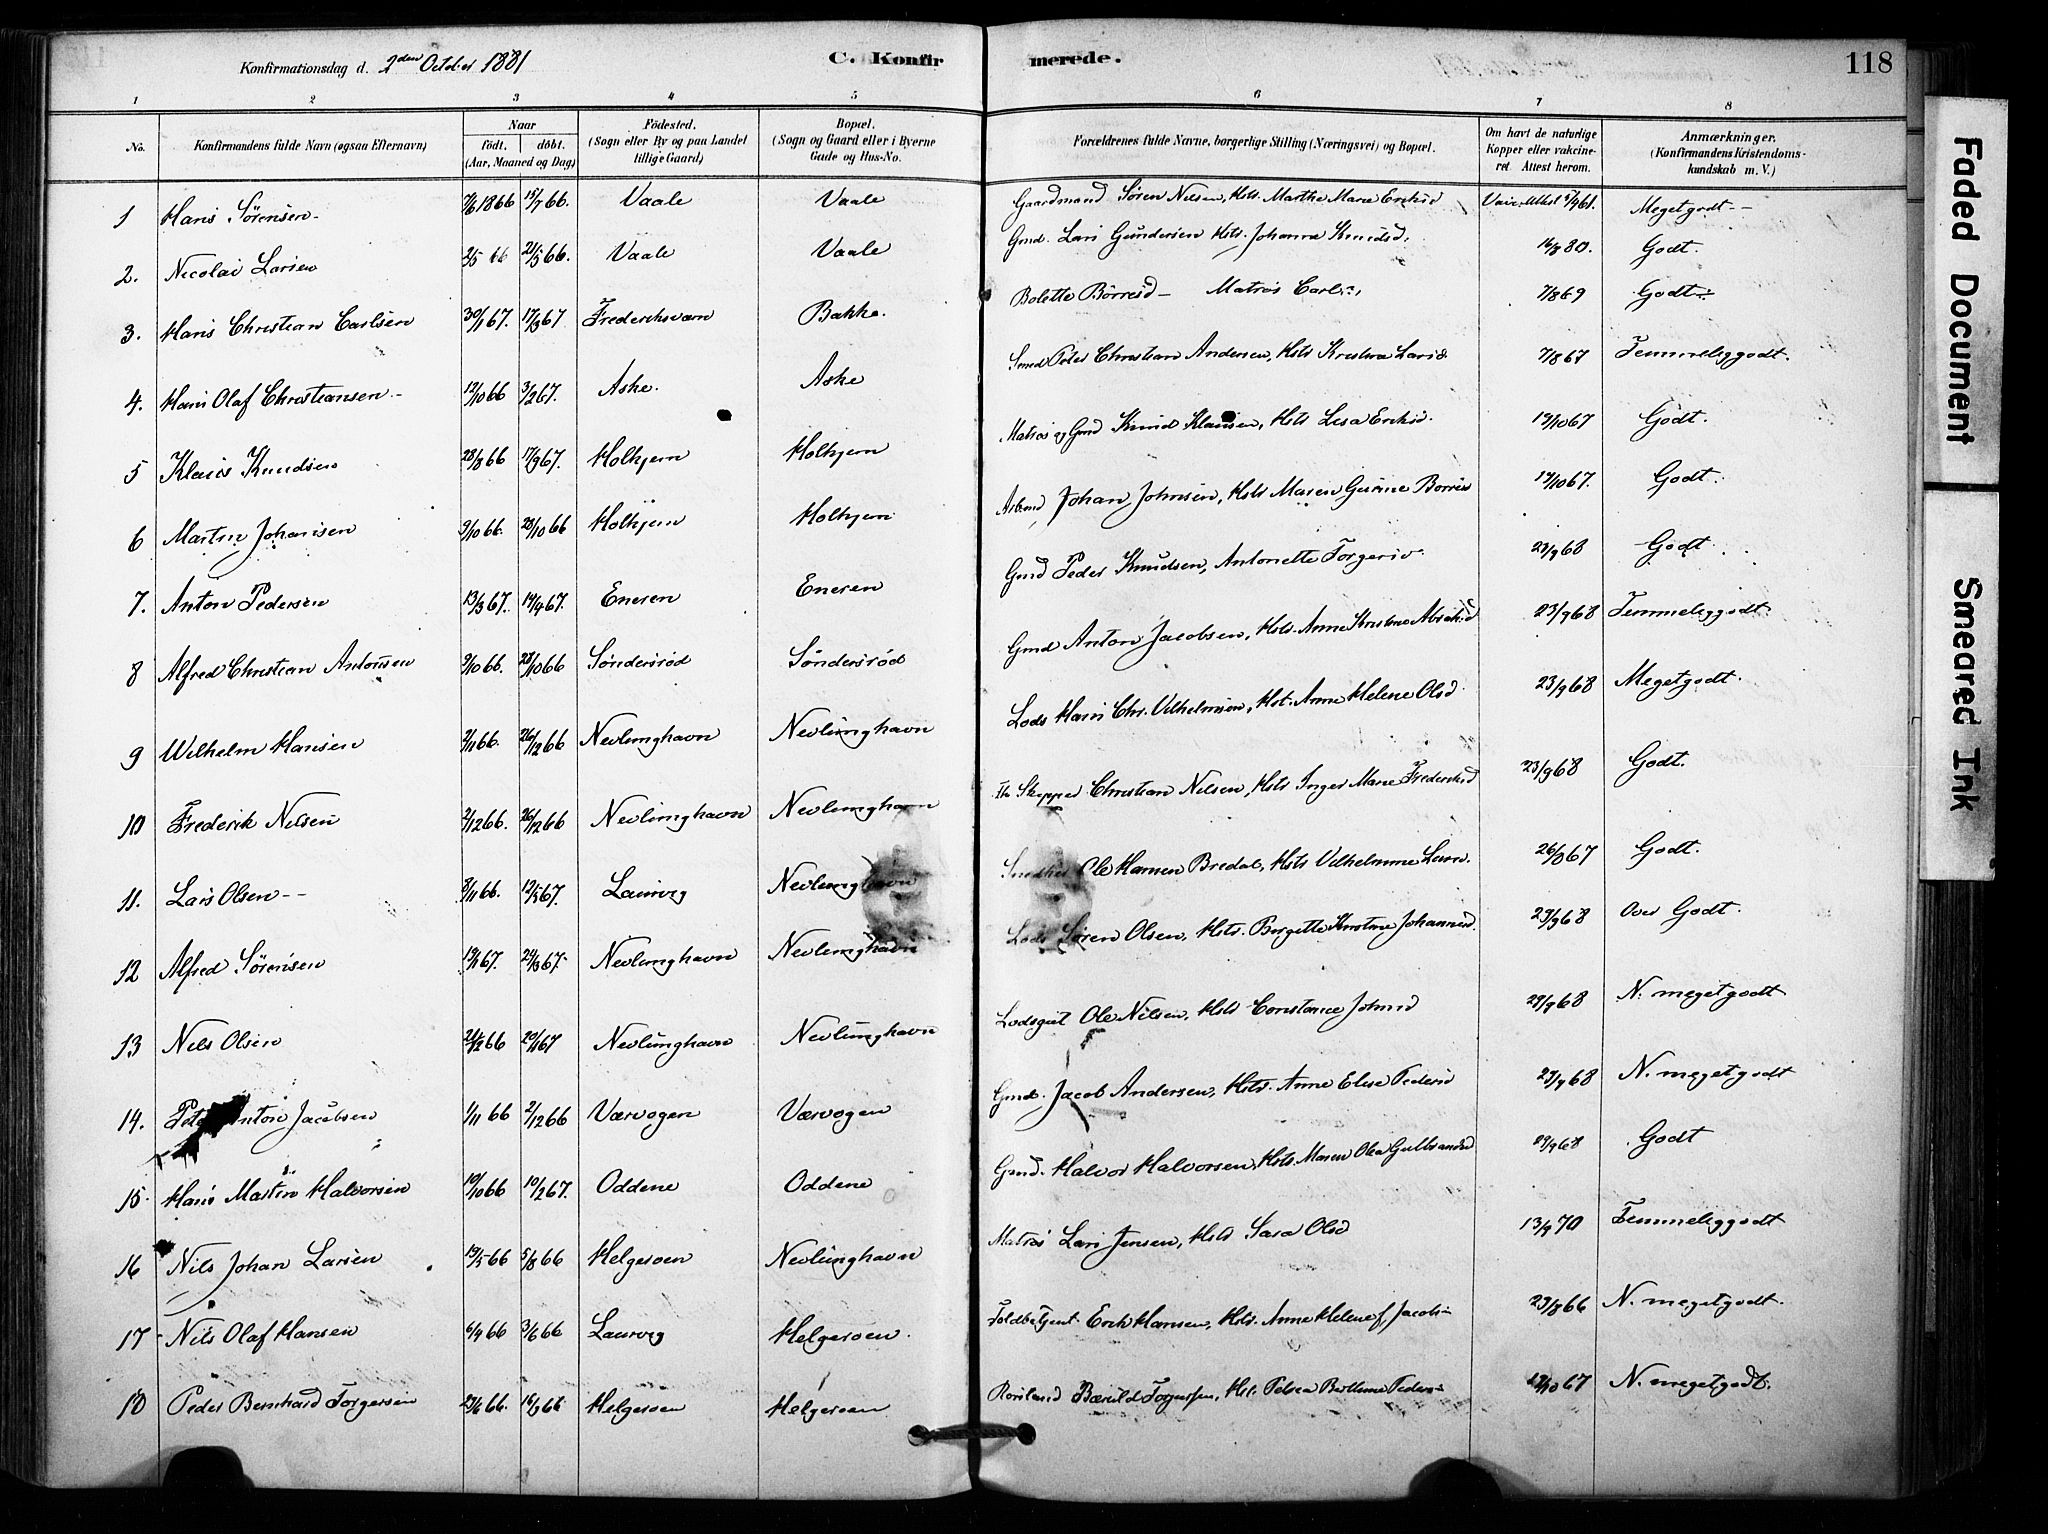 Konfirmationsdag d. 2den October 1881 C. Konfirmerede. 118
1 2 3 4 5 6 7 8
No. Konfirmandens fulde Navn (ogsaa Efternavn) Naar födt. döbt. (Aar, Maaned og Dag) Födested. (Sogn eller By og paa Landet tillige Gaard) Bopæl. (Sogn og Gaard eller i Byerne Gade og Hus-No. Forældrenes fulde Navne, borgerlige Stilling (Næringsvei) og Bopæl. Om havt de naturlige Kopper eller vakcineret. Attest herom. Anmærkninger. (Konfirmandens Kristendomskundskab m. V.)
1 Hans Sörensen 7/6 1866 15/7 66. Vaale Vaale Gaardmand Sören Nilsen, Hst. Marthe Marie Ericksd Meget godt
2. Nicolai Larsen 2/5 66 21/5 66. Vaale Vaale Gmd. Lars Gundersen Hst. Johanne Knudsd. 16/8 80. Godt.
3. Hans Christian Carlsen 30/1 67. 17/3 67 Frederiksværn Bakke. Bolette Börresd Matros Carl 7/8 69 Godt
4. Hans Olaf Christiansen 12/10 66 3/2 67. Aske. Aske Smed Peter Christian Andersen, Hst Kristine Larsd 7/8 67 Temmeliggodt.
5 Klaus Knudsen 28/8 66 17/3 67. Holkjem Holkjem Matros og Gmd Knud Klausen, Hst Lisa Ericksd. 19/10 67 Godt.
6 Martin Johansen 9/10 66. 28/10 66 Holkjem Holkjem Johan Johnsen, Hst Maren Gurine Borres 19/10 67. Godt.
7. Anton Pedersen 13/3 67. 14/4 67. Eneren Eneren Gmd Peder Knudsen, Antonette Torgersd. 23/9 68 Godt
8 Alfred Christian Antonsen 9/10 66. 28/10 66 Söndersröd Söndersröd Gmd Anton Jacobsen, Hst. Anne Kristine Abrahsd 23/9 68 Temmeliggodt
9 Wilhelm Hansen 2/11 66. 26/12 66 Nevlunghavn Nevlunghavn Lods Hans Chr. Vilhelmsen, Hst. Anne Helene Olsd 23/9 68 Megetgodt.
10 Frederik Nilsen 2/12 66. 26/12 66 Nevlunghavn Nevlunghavn Skipper Christian Nilsen, Hst Inger Marie Frederiksd 23/9 68 Godt.
11. Lars Olsen 8/11 66. 12/5 67. Laurvig Nevlunghavn Ole Hansen Bredal, Hst Vilhelmine Larsd. Godt.
12 Alfred Sörensen 19/1 67. 24/3 67. Nevlunghavn Nevlunghavn Lods Sören Olsen, Hst. Birgitte Kirstine Johannesd. 29/9 68 Over Godt.
13 Nils Olsen 20/1 67 Nevlunghavn Nevlunghavn Lodsgut Ole Nilsen, Hst Constance Johnsd 29/9 68 N. megetgodt
14. Peter Anton Jacobsen 1/11 66 2/12 66 Værvogen Værvogen Gmd. Jacob Andersen, Hst. Anne Elise Pedersd 23/9 68 N. megetgodt
15. Hans Martin Halvorsen 10/10 66 10/2 67. Oddene Oddene Gmd. Halvor Halvorsen, Hst. Maren Olea Gulbrandsd 29/9 68 Godt
16 Nils Johan Larsen 19/5 66 5/8 66 Helgeroen Nevlunghavn Matros Lars Jensen, Hst Sara Olsd 13/9 70 Temmeliggodt
17 Nils Olaf Hansen 6/4 66 3/6 66 Laurvig Helgeroen. Toldbetjent Erik Hansen, Hst. Anne Helene f. Jacobs 23/8 66 N. megetgodt.
18 Peder Bernhard Torgersen Helgeroen Helgeroen Torgersen, Hst. Berthine Peders 67 N. megetgodt.
Faded Document
Smeared Ink